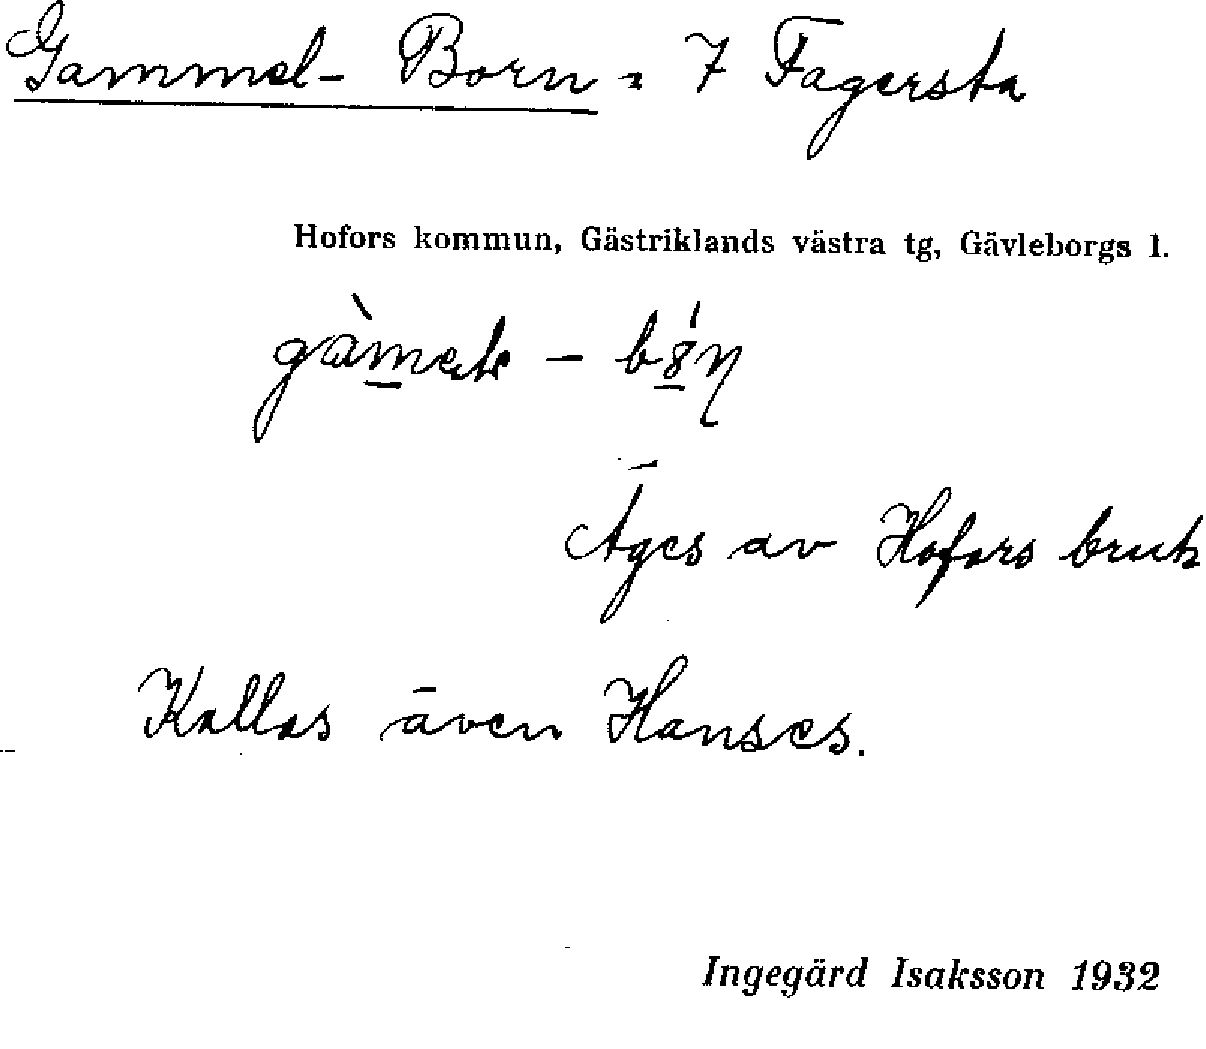 Gammel- Born = 7 Fagersta
Hofors kommun, Gästriklands västra tg, Gävleborgs l.
Äges av Hofors bruk
Kallas även Hanses.
Ingegärd Isaksson 1932